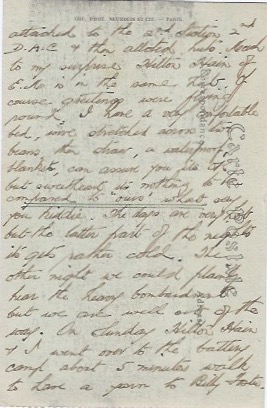 attached to the 2nd Section 2nd
D.A.C. & then allotted huts. Much
to my surprise Hilton Hain of
E. is in the same hut, of
course greetings were flying
round. I have a very comfortable
bed, wire stretched across two
beams, then straw, a waterproof
blankets, can assure you its it
but sweetheart its nothing to be
compared to "ours" what say
you Kiddie. The days are very hot
but the latter part of the nights
it gets rather cold. The
other night we could plainly
hear the heavy bombardment
but we are well out of the
way. On Sunday Hilton Hain
& I went over to the battery
camp about 5 minutes walk
to have a yarn to Billy